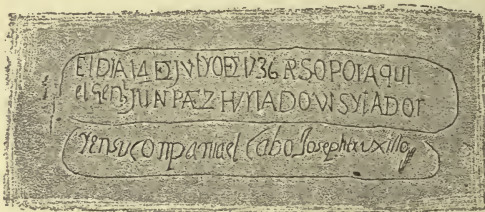 El DIA 14 DE JVlYO DE 1736 PASO POr AQUI
el Genl JUN PAEZ HVrTADO VISYTADOr
Y en su conpania el Cabo Joseph truxillo